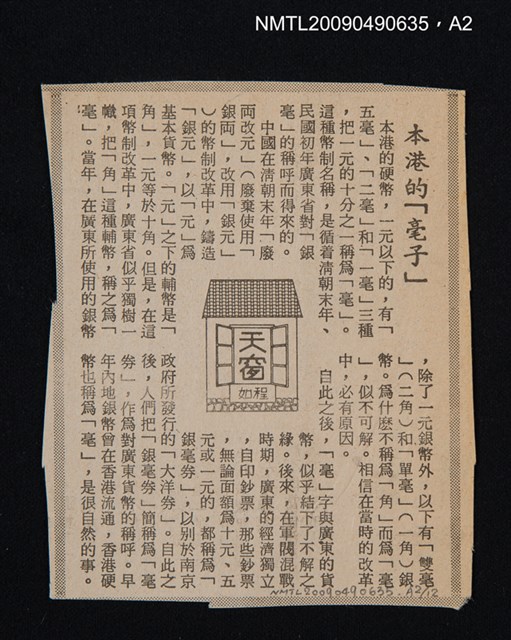 NMTL20090490635，A2
本港的「毫子」
本港的硬幣，一元以下的，有「
五毫」、「二毫」和「一毫」三種
，把一元的十分之一稱爲「毫」。
這種幣制名稱，是循着淸朝末年、
民國初年廣東省對「銀
毫」的稱呼而得來的。
中國在淸朝末年「廢
両改元」（廢棄使用「
銀両」，改用「銀元」
）的幣制改革中，鑄造
「銀元」，以「元」爲
基本貨幣。「元」之下的輔幣是「
角」，一元等於十角。但是，在這
項幣制改革中，廣東省似乎獨樹一
幟，把「角」這種輔幣，稱之爲「
毫」。當年，在廣東所使用的銀幣
天窗
程如
，除了一元銀幣外，以下有「雙毫
」（二角）和「單毫」（一角）銀
幣。爲什麽不稱爲「角」而爲「毫
」，似不可解。相信在當時的改革
中，必有原因。
自此之後，「毫」字與廣東的貨
幣，似乎結下了不解之
緣。後來，在軍閥混戰
時期，廣東的經濟獨立
，自印鈔票，那些鈔票
，無論面額爲十元、五
元或一元的，都稱爲「
銀毫券」，以別於南京
政府所發行的「大洋券」。自此之
後，人們把「銀毫券」簡稱爲「毫
券」，作爲對廣東貨幣的稱呼。早
年內地銀幣曾在香港流通，香港硬
幣也稱爲「毫」，是很自然的事。
NMTL20090490635．A2/12